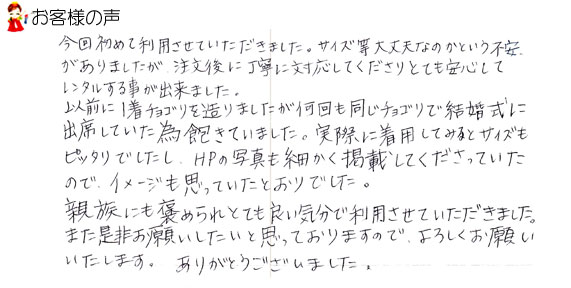 お客様の声
今回初めて利用させていただきました。サイズ等大丈夫なのかという不安
がありましたが、注文後に丁寧に対応してくださりとても安心して
レンタルする事が出来ました。
以前に1着チョゴリを造りましたが何回も同じチョゴリで結婚式に
出席していた為飽きていました。実際に着用してみるとサイズも
ピッタリでしたし、HPの写真も細かく掲載してくださっていた
ので、イメージも思っていたとおりでした。
親族にも褒められとても良い気分で利用させていただきました。
また是非お願いしたいと思っておりますので、よろしくお願い
いたします。 ありがとうございました。